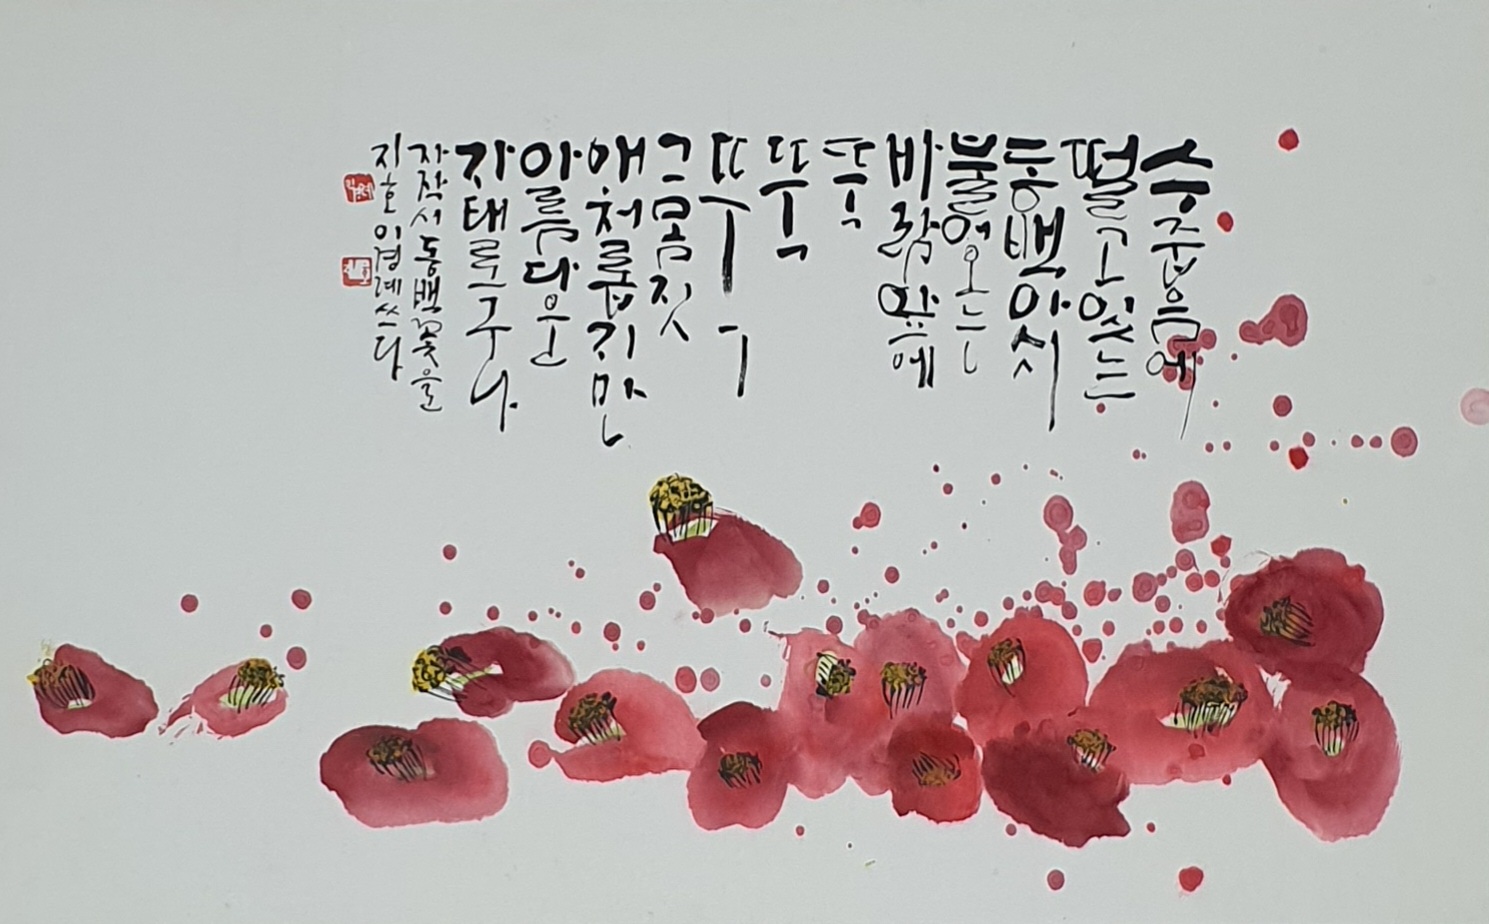 수줍음에
떨고 있는
동백아시
불어오는
바람 앞에
뚝
뚝
뚝
그 몸짓
애처롭지만
아름다운
자태로구나
자작시 동백꽃을
지호 이경례 쓰다